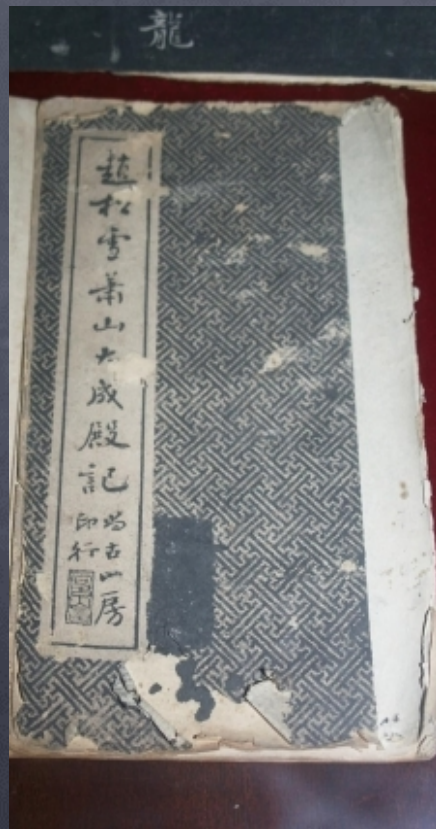 龍
趙松雪萧山大成殿記
尚古山房
印行